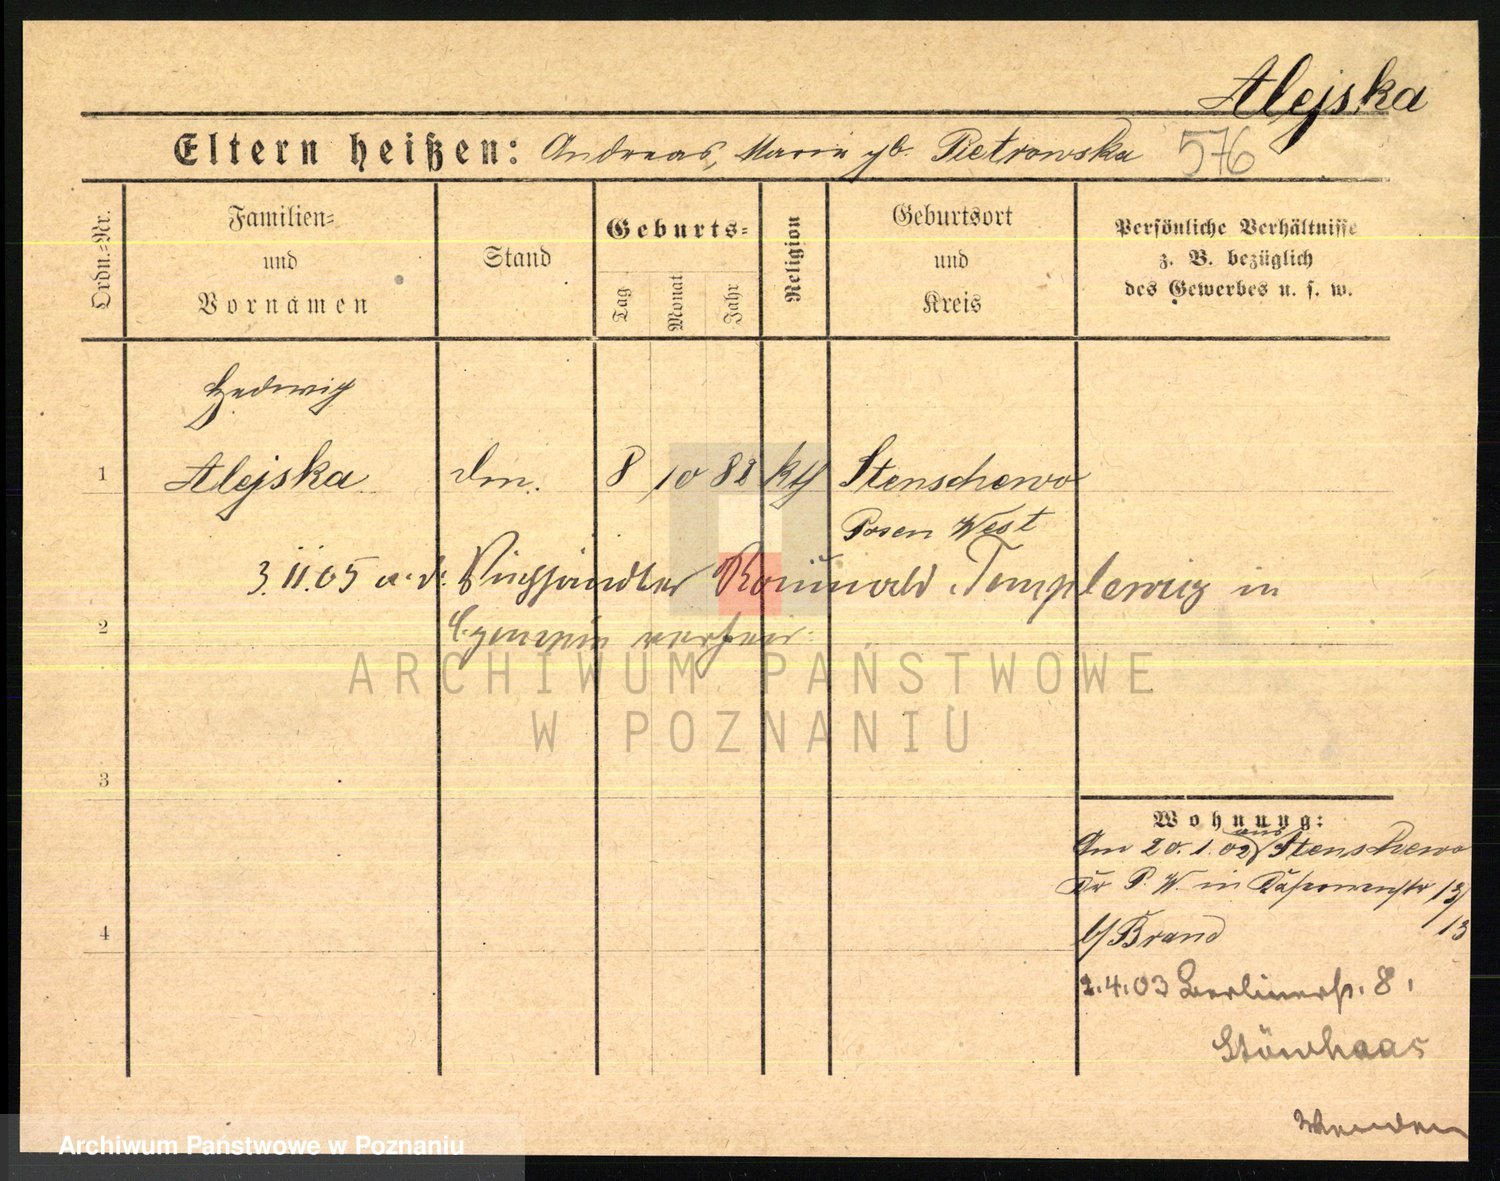 Alejska
Eltern heißen: Andreas, Maria gb. Pietrowska 576
Ordn.-Nr.
Familien-
und
Vornamen
Stand
Geburts-
Tag
Monat
Jahr
Religion
Geburtsort
und
Kreis
Persönliche Verhältnisse
z. B. bezüglich
des Gewerbes u. s. w.
Hedwig
1 Alejska dm. 8 10 82 kth Stenschewo
Posen West
3.11.05 a. d. Viehhändler Romuald Templewicz in
2
verheir.
ARCHIWUM PAŃSTWOWE
W POZNANIU
3
4
Wohnung:
Am 20.1.02 aus Stenschewo
Kr P. W. in 13/
13
b/ Brand
2.4.03 Berlinerstr. 8.
Stöwhaas
Wenden
Archiwum Państwowe w Poznaniu